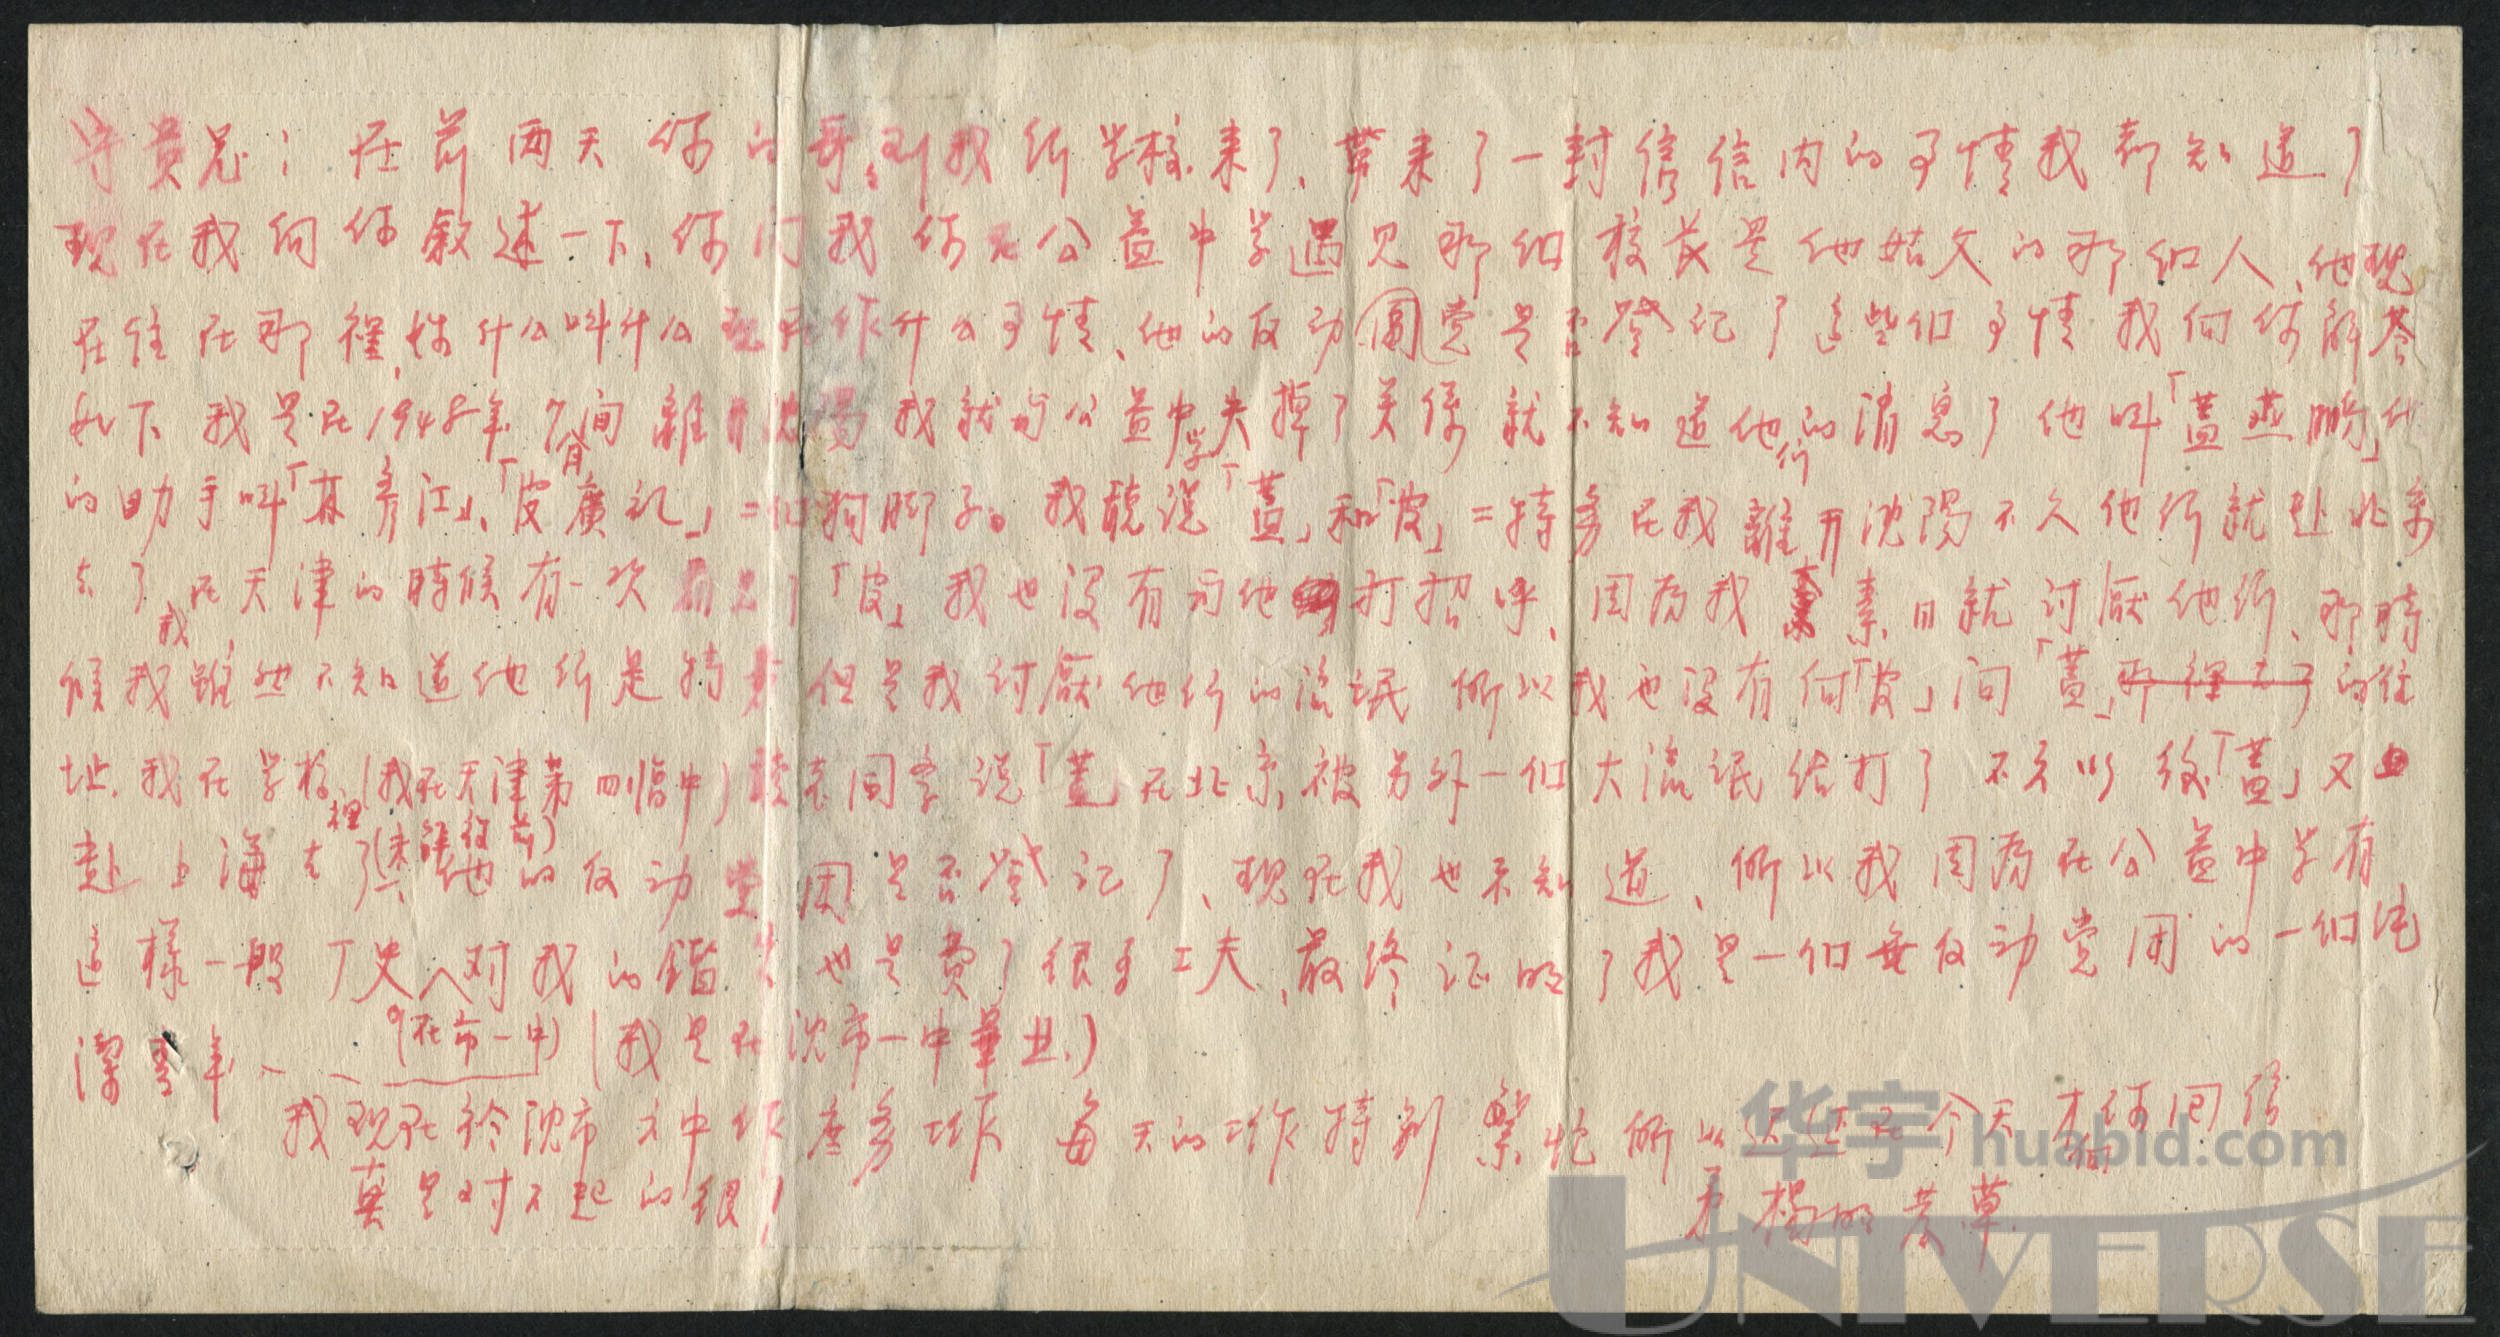 守貴兄：在前两天你的哥々到我们学校来了、带来了一封信信内的事情我都知道了
现在我向你叙述一下、你问我你在公益中学遇见那個校长是他姑父的那個人、他现
在住在那裡、姓什么叫什么现在作什么事情、他的反动团党是否登记了這些個事情我向你解答
如下 我是在1948年7月间離开沈陽我就与公益中学失掉了关係就不知道他们的消息了他叫「蓋燕鵬」他
的助手叫「林秀江」、「皮廣礼」二個狗腳子。我聽说「蓋」和「皮」二特务在我離开沈陽不久他们就赴北京
去了、我在天津的時候有一次看見了「皮」我也没有与他打招呼、因为我素日就讨厭他们、那時
候我雖然不知道他们是特务但是我讨厭他们的流氓 所以我也没有向「皮」问「蓋」那裡去了的住
址、我在学校裡(我在天津第四临中)聽老同学说「蓋」在北京被另外一個大流氓给打了 不久以後「蓋」又
赴上海去了(未解放前)、他的反动党团是否登记了、现在我也不知道、所以我因为在公益中学有
這様一般丁史人对我的鑑 也是费了很多工夫、最终证明了我是一個無反动党团的一個纯
潔青年、(在市一中)(我是在沈市一中畢业、)
我现在於沈市六中作庶务工作 每天的工作特别繁忙所以迟延在今天才向你回信
真是对不起的很！
弟 楊明 草草
华宇 huabid.com
UNIVERSE